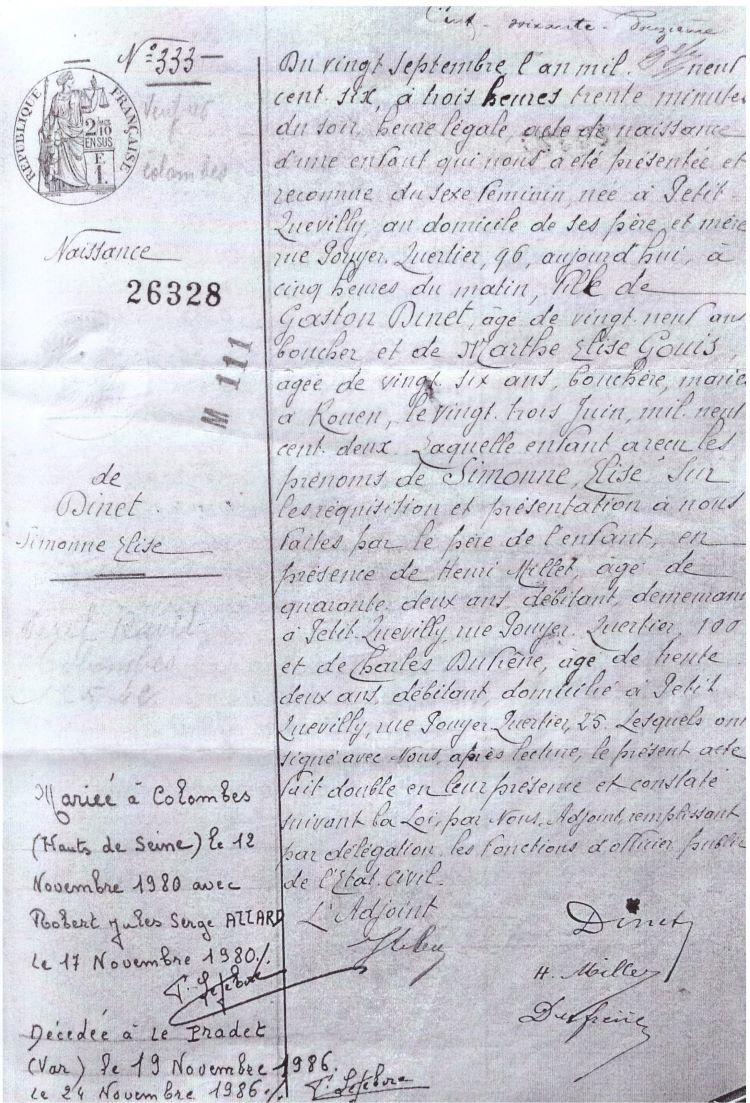 Cent soixante-onzième
N° 333
RÉPUBLIQUE FRANÇAISE
2/10
EN SUS
F
1
Naissance
26328
M 111
de
Dinet
Simonne Elise
Du vingt Septembre l'an mil neuf
cent six, à trois heures trente minutes
du soir, heure légale acte de naissance
d'une enfant qui nous a été présentée et
reconnue du sexe féminin, née à Petit
Quevilly, au domicile de ses père et mère
rue Pouyer Quertier, 96, aujourd'hui, à
cinq heures du matin, fille de
Gaston Dinet, âgé de vingt neuf ans
boucher et de Marthe Elise Gouis,
âgée de vingt six ans, bouchère, mariés
à Rouen, le vingt trois Juin, mil neuf
cent deux. Laquelle enfant a reçu les
prénoms de Simonne, Elise Sur
les réquisition et présentation à nous
faites par le père de l'enfant, en
présence de Henri Millet, âgé de
quarante deux ans débitant, demeurant
à Petit Quevilly, rue Pouyer Quertier, 100
et de Charles Dufrêne, âgé de trente
deux ans, débitant, domicilié à Petit
Quevilly, rue Pouyer Quertier, 25. Lesquels ont
signé avec Nous, après lecture, le présent acte
fait double en leur présence et constaté
suivant la Loi, par Nous, Adjoint, remplissant
par délégation, les fonctions d'officier public
de l'Etat Civil.
L'Adjoint
Dinet
H. Millet
Dufrêne
Mariée à Colombes
(Hauts de Seine) le 12
Novembre 1980 avec
Robert Jules Serge ALLARD
Le 17 Novembre 1980
T. Lefebvre
Décédée à Le Pradet
(Var) le 19 Novembre 1986.
Le 24 Novembre 1986 T. Lefebvre